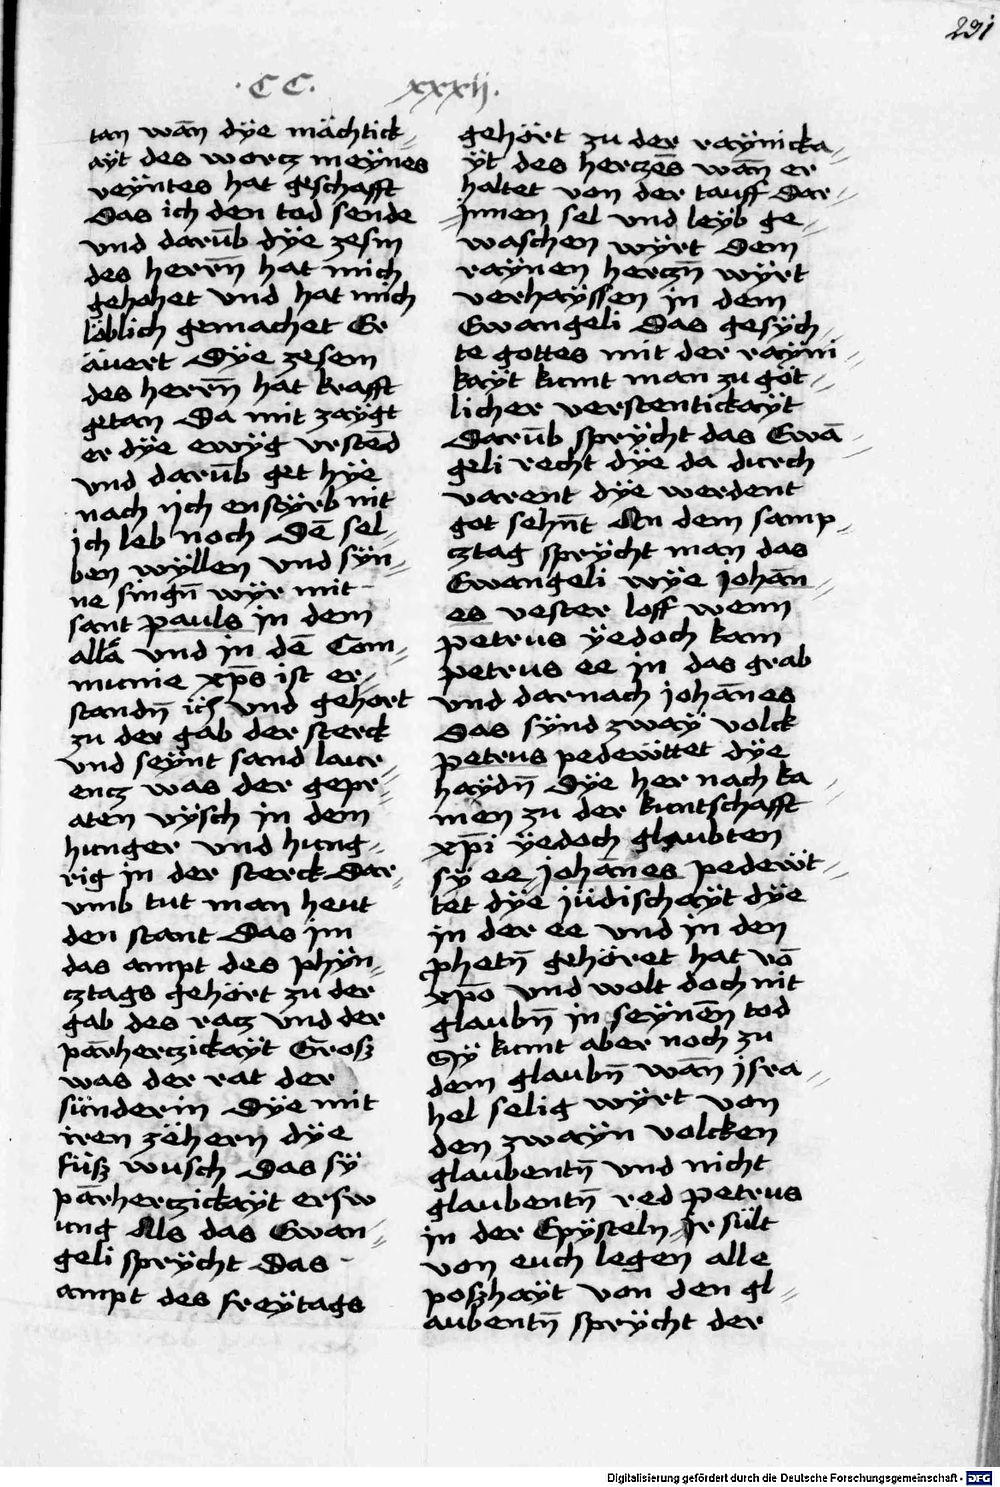 291
·CC· xxxij.
tan wān dÿe mächtick=
aÿt des worcz meÿnes
veÿntes hat geschafft
Das ich den tod sende
und darūb dÿe zesm
des herrn̄ hat mich
gehohet und hat mich
löblich gemachet Er
äuert Dÿe zesem
des herrn̄ hat krafft
getan Da mit zaÿgt
er dÿe ewÿg vrstēd
und darūb get hÿe
nach ich enstÿrb nit
ich leb noch Dē sel=
ben wÿllen und sÿn=
ne singn̄ wÿr mit
sant pauls in dem
alla und in dē Com=
munie xp̄s ist er=
standn̄ und gehört
zu der gab der sterck
und seÿnt sand laur=
encz was der gepr=
aten vÿsch in dem
hunger und hung=
rig in der sterck Dar=
umb tut man heut
den stant Das im
das ampt des phÿn=
cztags gehört zu der
gab des racz und der
pārherczickaÿt Grosz
was der rat der
sünderin Dÿe mit
iren zähern dÿe
füsz wusch Das sÿ
pārherczickaÿt ersw
ung Als das Ewan=
geli sprÿcht Das
ampt des freÿtags
gehört zu der raÿnicka=
ÿt des herczēs wān er
haltet von der tauff Dar=
Jnnen sel und leÿb ge=
waschen wÿrt Dem
raÿnen herczn̄ wÿrt
verhaÿssen in dem
Ewangeli Das gesÿch=
te gottes mit der raÿni=
kaÿt kumt man zu göt=
licher verstentickaÿt
Darūb sprÿcht das Ewā=
geli recht dÿe da durch
varent dÿe werdent
got sehn̄t An dem samp=
cztag sprÿcht man das
Ewangeli wÿe johān=
es vester loff wenn
petrus ÿedoch kam
petrus ee in das grab
und darnach johānes
Das sÿnd zwaÿ volck
petrus pedewttet dÿe
haÿdn̄ Dÿe her nach ka=
men zu der kuntschafft
xp̄i ÿedoch glaubten
sÿ ee johānes pedewt=
tet dÿe jüdischaÿt dÿe
in der ee und in den
phetn̄ gehöret hat vō
xp̄o und wolt doch nit
glaubn̄ in seÿnēn tod
Sÿ kumt aber noch zu
dem glaubn̄ wān jsra=
hel selig wÿrt von
den zwaÿn volcken
glaubentn̄ und nicht
glaubentn̄ red petrus
in der Epÿsteln Ir sült
von euch legen alle
poszhaÿt von den gl=
aubentn̄ sprÿcht der
Digitalisierung gefördert durch die Deutsche Forschungsgemeinschaft - DFG